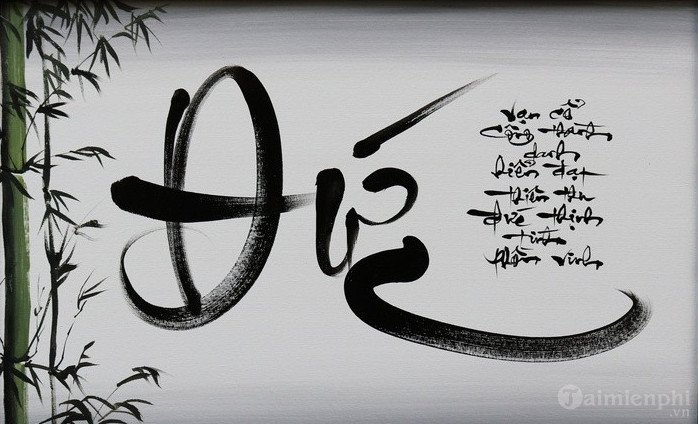 Đức
Vạn cổ
Công thành
danh
hiển đạt
thiên thu
đức thịnh
phồn vinh
Taimienphi
.vn